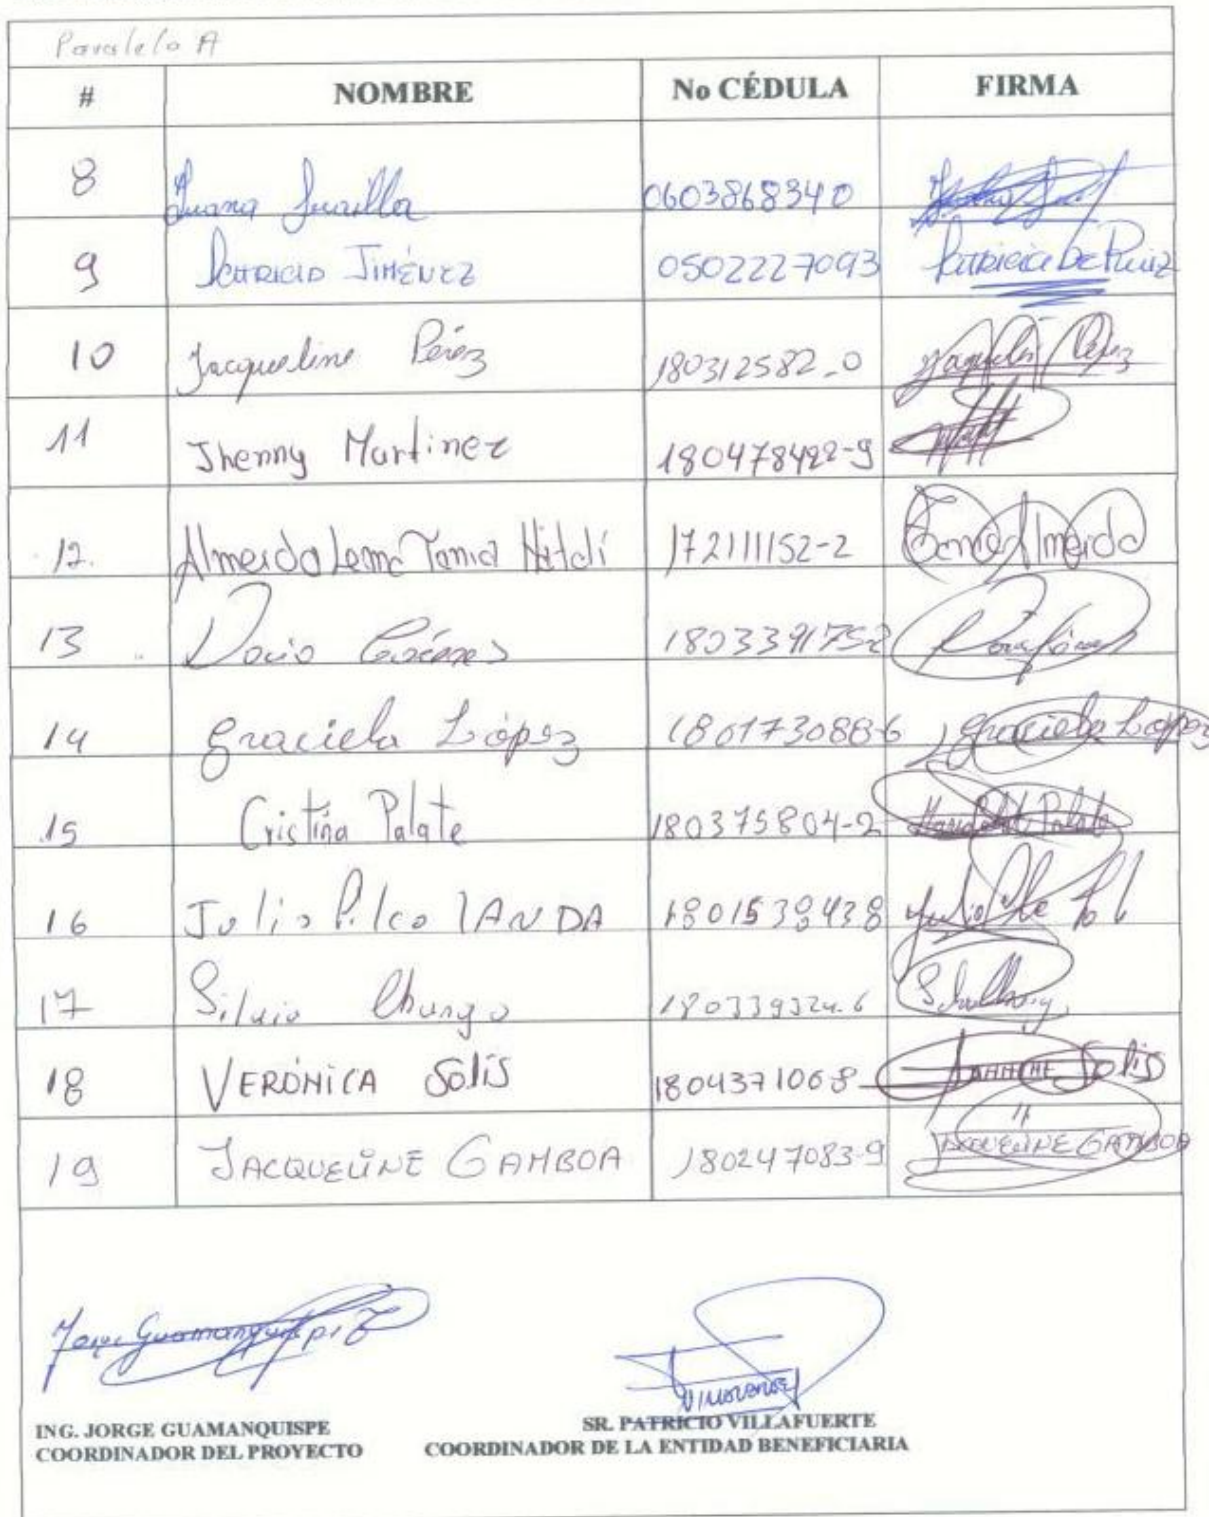 Paralelo A
# NOMBRE No CÉDULA FIRMA
8 Juana 0603868340
9 Patricia JIMÉNEZ 0502227093 Patricia De Ruiz
10 Jacqueline Pérez 180312582-0 Jaquelin Pérez
11 Jhenny Martinez 180478422-9
12. Almeida Lema Tania Natali 172111152-2 Tania Almeida
13 180339175-2
14 Graciela López 180173088-6 Graciela López
15 Cristina Palate 180375804-2 Palate
16 Julio Pilco LANDA 1801539438 Julio
17 Silvia Chango 180339324-6
18 VERÓNICA Solís 180437106-8 Solis
19 JACQUELINE GAMBOA 180247083-9 JACQUELINE GAMBOA
Jorge Guamanquispe
ING. JORGE GUAMANQUISPE SR. PATRICIO VILLAFUERTE
COORDINADOR DEL PROYECTO COORDINADOR DE LA ENTIDAD BENEFICIARIA